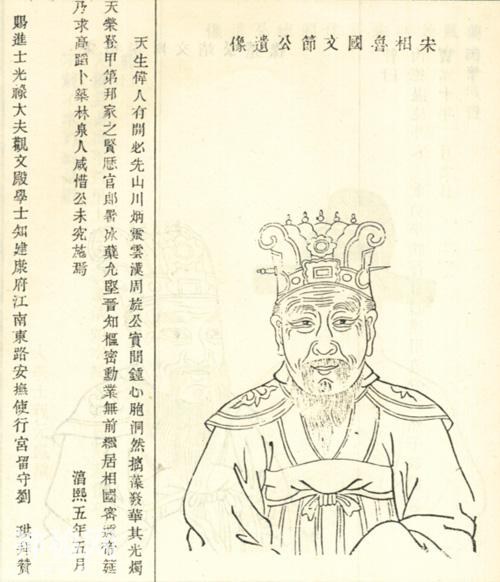 宋相魯國文節公遺像
天生偉人有開必先山川炳靈雲漢周旋公實間鍾心胞洞然摛藻發華其光燭
天榮登甲第邦家之賢歷官郎署冰蘗尤堅晉知樞密勳業無前繼居相國帝
乃求高蹈卜築林泉人咸惜公未究施焉 湻熙五年五月
賜進士光祿大夫觀文殿學士知建康府江南東路安撫使行宮留守劉 珙拜贊